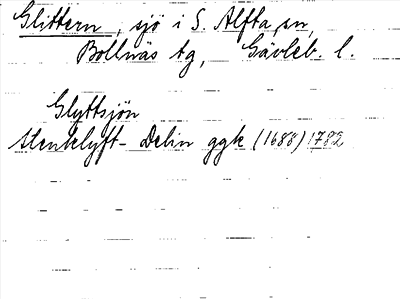 Glittern, sjö i S. Alfta sn,
Bollnäs tg, Gävleb. l.
Glyttsjön
Stenklyft- Delin ggk (1688) 1782